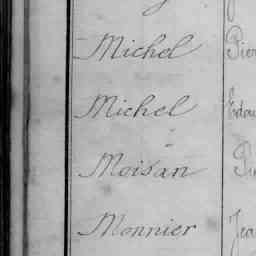 Michel
Michel
Moisan
Monnier